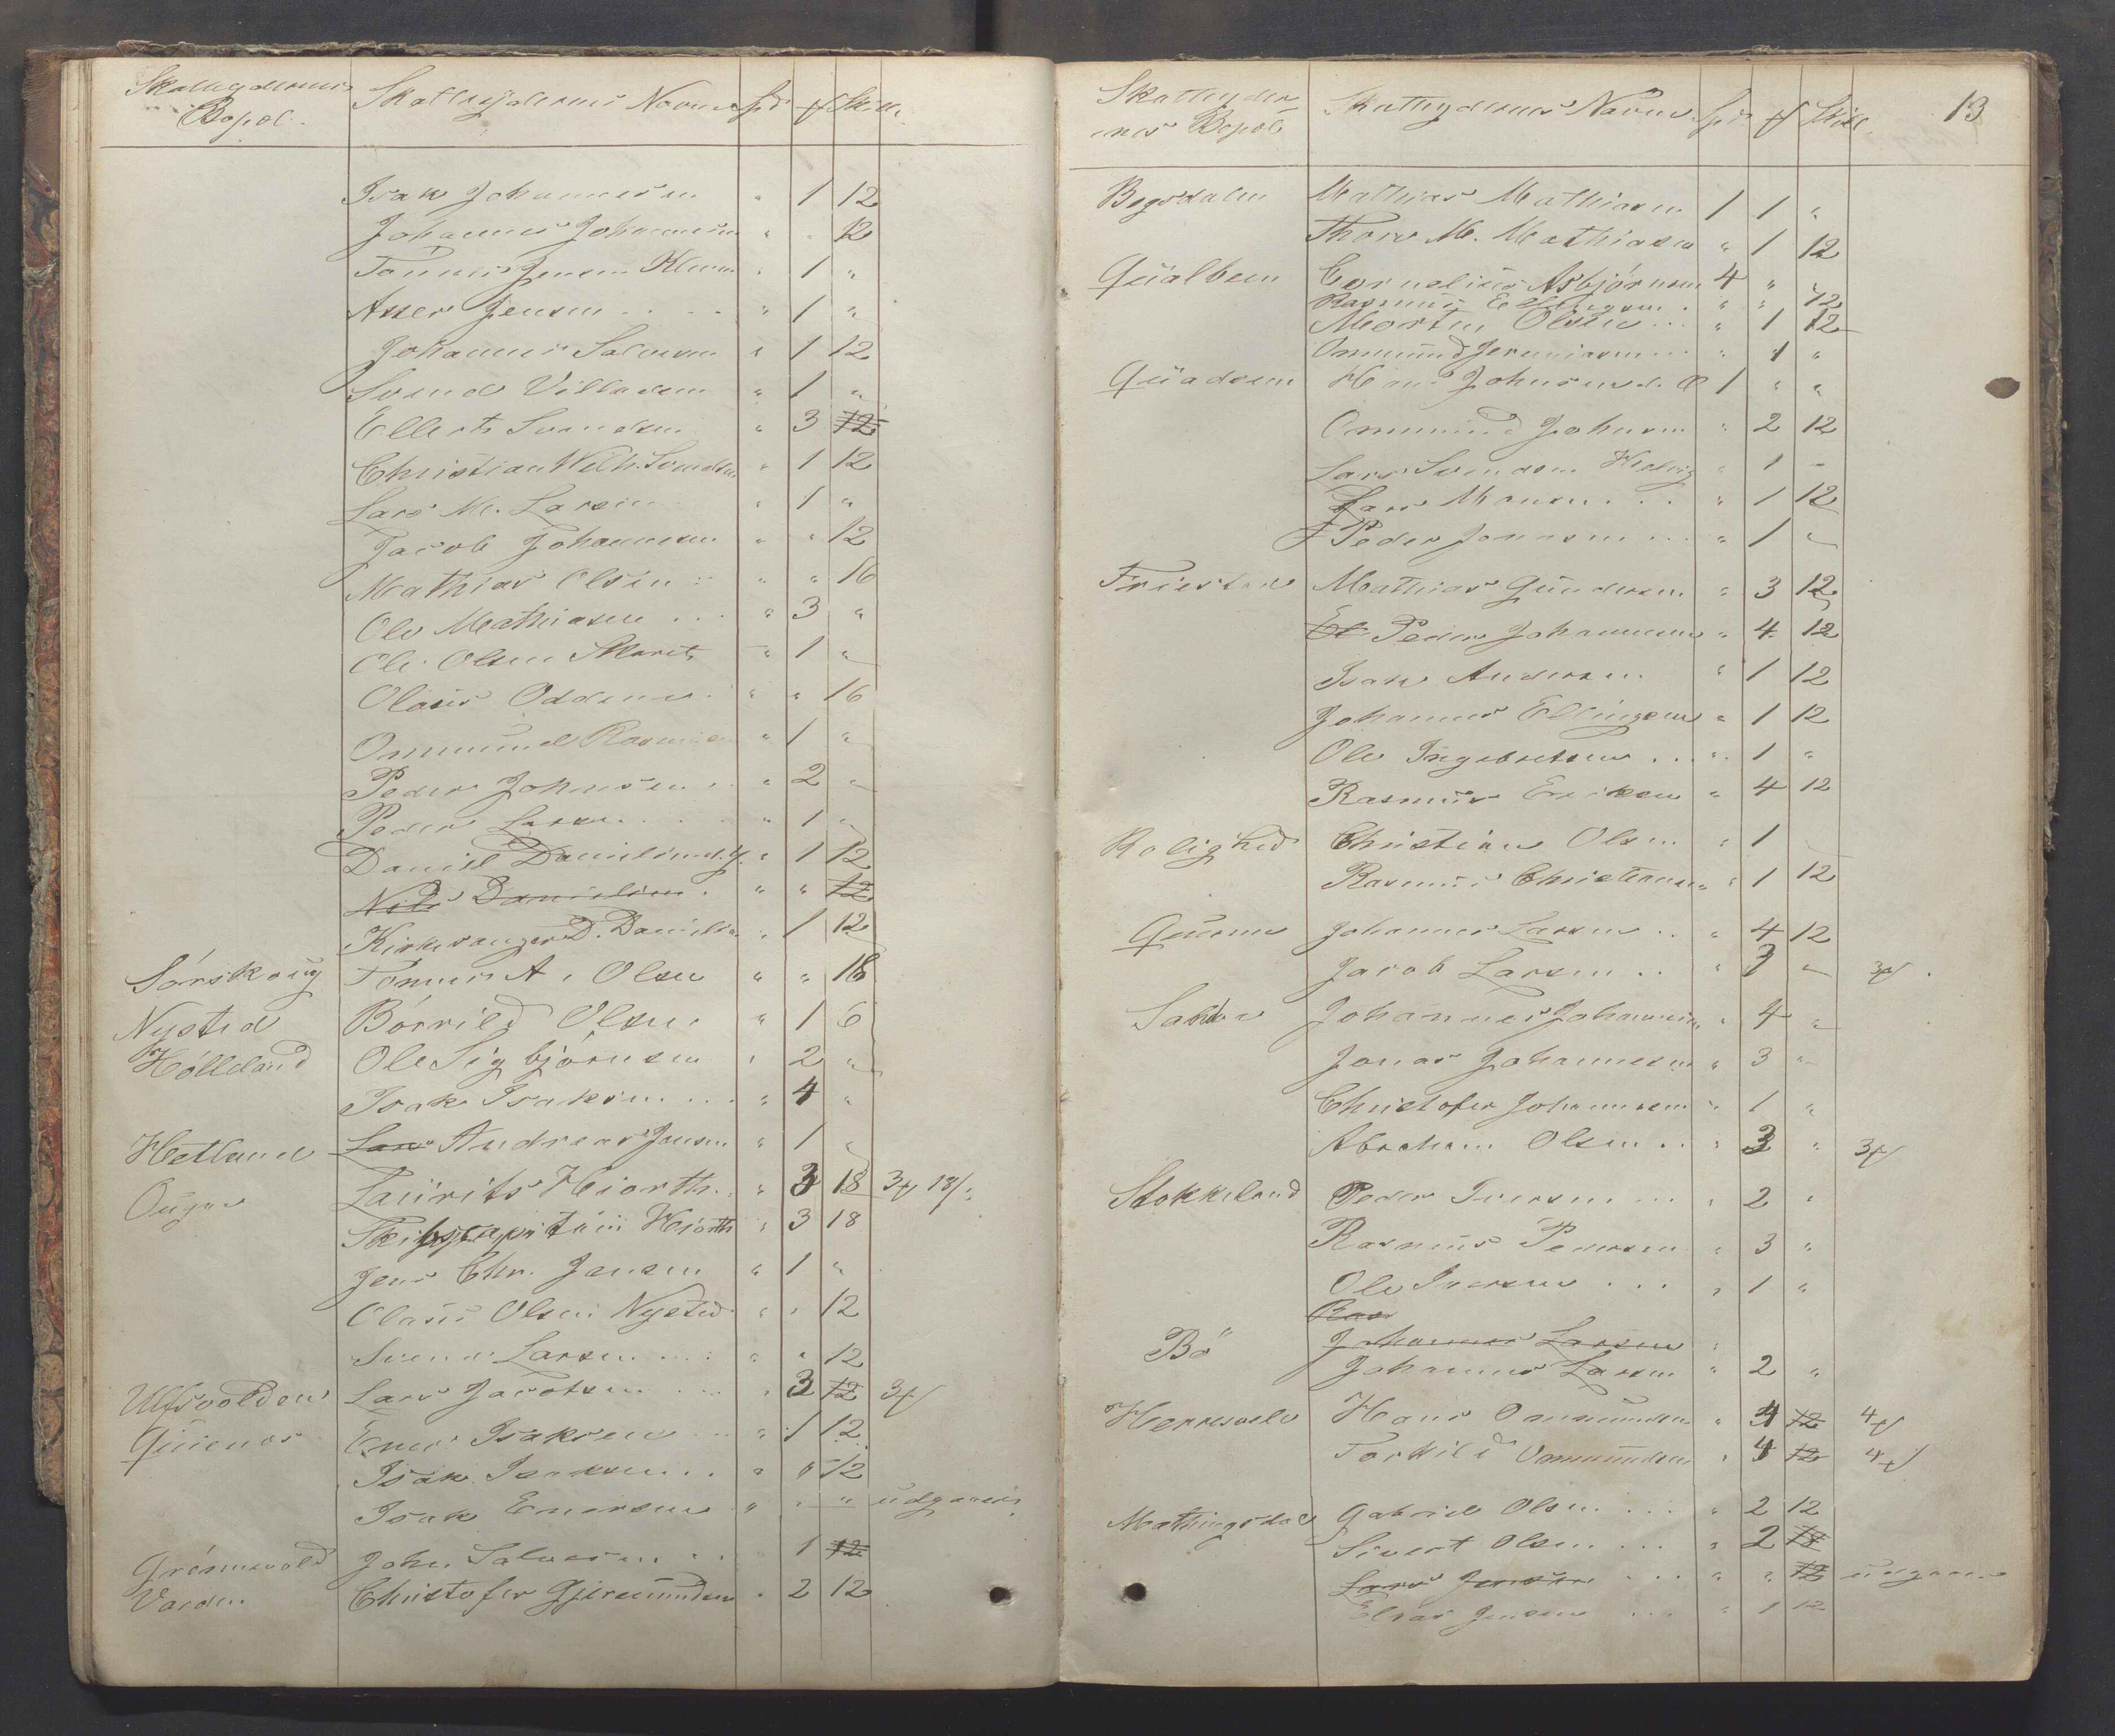 Skatteydernes Bopæl. Skatteydernes Navne Spd Skill.
Isak Johannesen " 1 12
Johannes Johannesen " " 12
Tønnes Jensen " 1 "
Asser Jensen . . . . " 1 "
Johannes Salvesen " 1 12
Svend Villadsen " 1 "
Ellert Svendsen " 3 12
Christian Wilh. Svendsen " 1 12
Lars M. Larsen " 1 "
Jacob Johannesen " " 12
Mathias Olsen " " 16
Ole Mathiasen . . . " 3 "
Ole Olsen " 1 "
Olaus Oddene " " 16
Ommund Rasmusen " 1 "
Peder Johnsen . . " 2 "
Peder Larsen . . . " 1 "
Daniel Danielsen d. y. " 1 12
Nils Danielsen . " " 12
Kirkesanger D. Danielsen " 1 12
Sørskoug Tønnes A. Olsen " " 18
Nysted Børrild Olsen " 1 6
Hølleland Ole Sigbjørnsen " 2 "
Isak Isaksen . . . " 4 "
Hetland Lars Andreas Jensen " 1 "
Laurits Hiorth . " 3 18 3 18
Skibscapitain Hiorth " 3 18
Jens Chr. Jensen " 1 "
Olaus Olsen Nysted " " 12
Svend Larsen . . . " " 12
Ulfsvolden Lars Jacobsen . . . " 3 12 3
Isaksen . . " 1 12
Isak Isaksen . . " " 12
Isak " " " udgaaer
Grønnevold John Salvesen . . 1 12
Varden Christofer Gjeremundsen " 2 12
Skatteydernes Bopæl Skatteydernes Navne Spd Skill. 13
Mathias Mathiasen 1 1 "
M. Mathiasen " 1 12
Qualbein Cornelius Asbjørnsen 4 "
Rasmus " " 12
Morten Olsen . . . " 1 12
Ommund Jeremiasen . . . " 1 "
Hans Johnsen 1 " "
Ommund Johnsen " 2 12
Lars Svendsen " 1 "
Lars Monsen . . . " 1 12
Peder Jonassen . . . " 1 "
Friestad Mathias Gundersen " 3 12
Peder Johannesen " 4 12
Isak Andersen " 1 12
Johannes Ellingsen " 1 12
Ole Ingebretsen . . . " 1 "
Rasmus Eriksen " 4 12
Rolighed Christian Olsen " 1
Rasmus Christiansen " 1 12
Johannes Larsen . . " 4 12
Jacob Larsen . . " 3 " 3
Johannes Johannesen " 4 "
Jonas Johannesen " 3 "
Christofer Johannesen " 1 "
Abraham Olsen . . " 3 " 3
Stokkeland Peder Iversen . . . " 2 "
Rasmus Pedersen " 3 "
Ole Iversen . . . " 1 "
Ras
Bö Johannes Larsen "
Johannes Larsen " 2 "
Hans Ommundsen " 4 12 4
Torkild Ommundsen " 4 12 4
Mathingsdal Gabriel Olsen . . . " 2 12
Sivert Olsen . . . " 2 12
Lars Jensen . . . " " 12 udgaaer
Elias Jensen . . . " 1 12